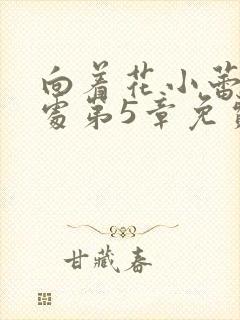 向着花小蕾
处第5章免费
甘藏春